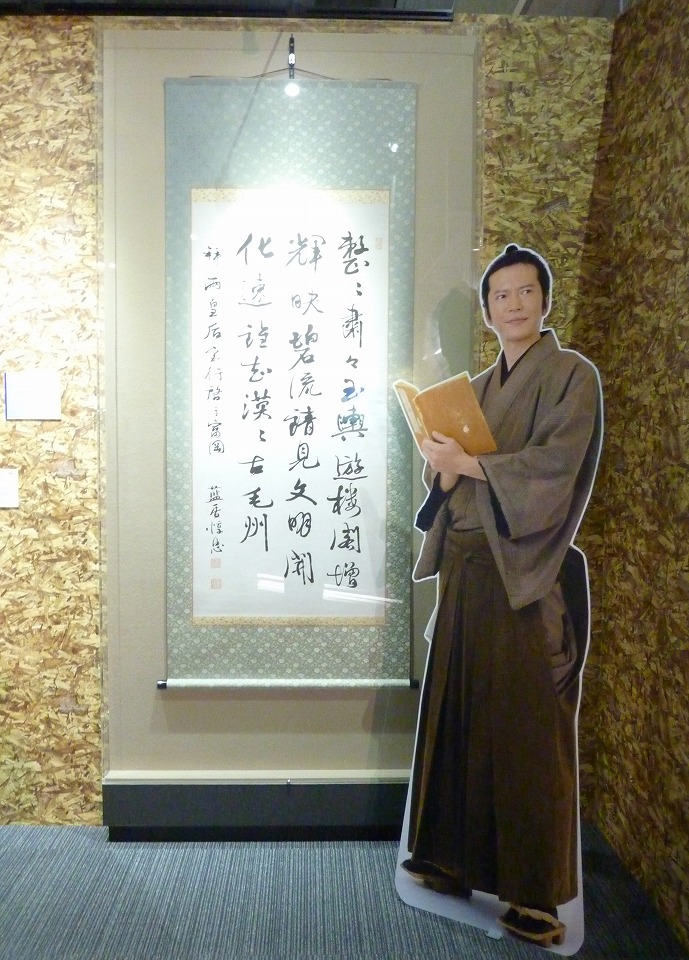 整々肅々玉輿遊楼閣増
輝映碧流請見文明開
化遠誰知漠々古毛州
両皇后宮行啓之富岡 藍香惇忠